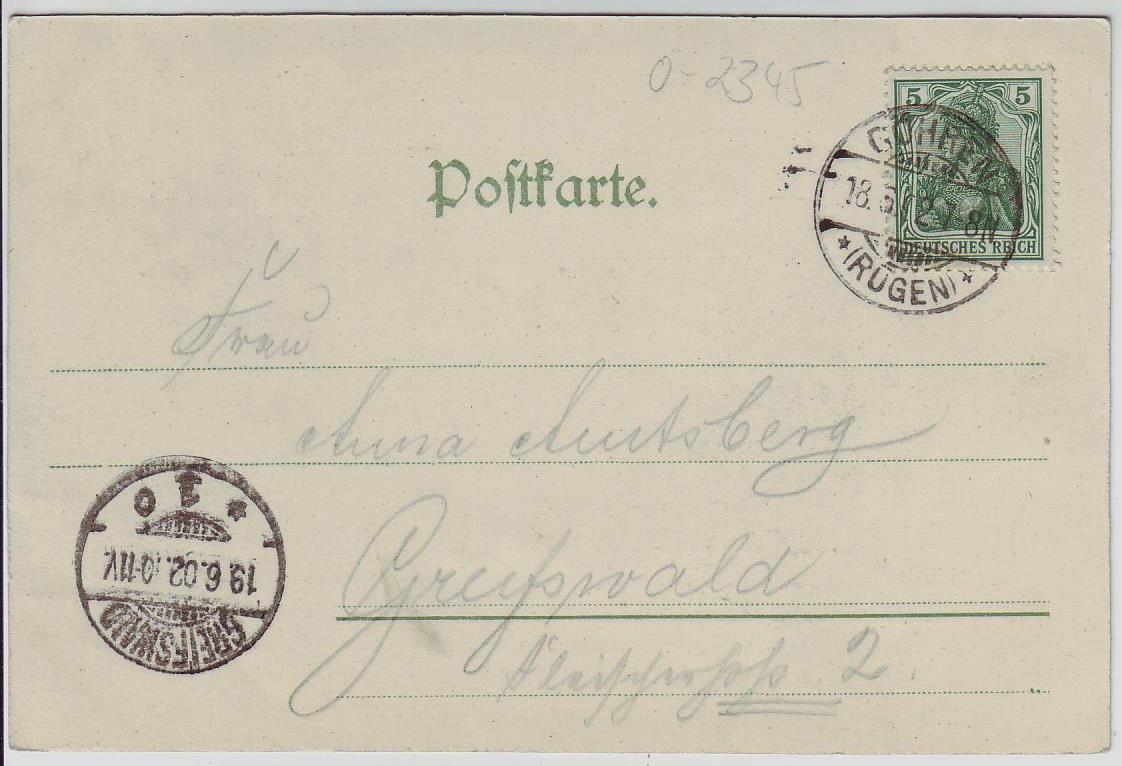 0-2345
5 5
DEUTSCHES REICH
GÖHREN
18.6.02.7-8N
*(RÜGEN)*
Postkarte.
Frau
Anna Amtsberg
Greifswald
2.
GREIFSWALD
19.6.02.10-11V.